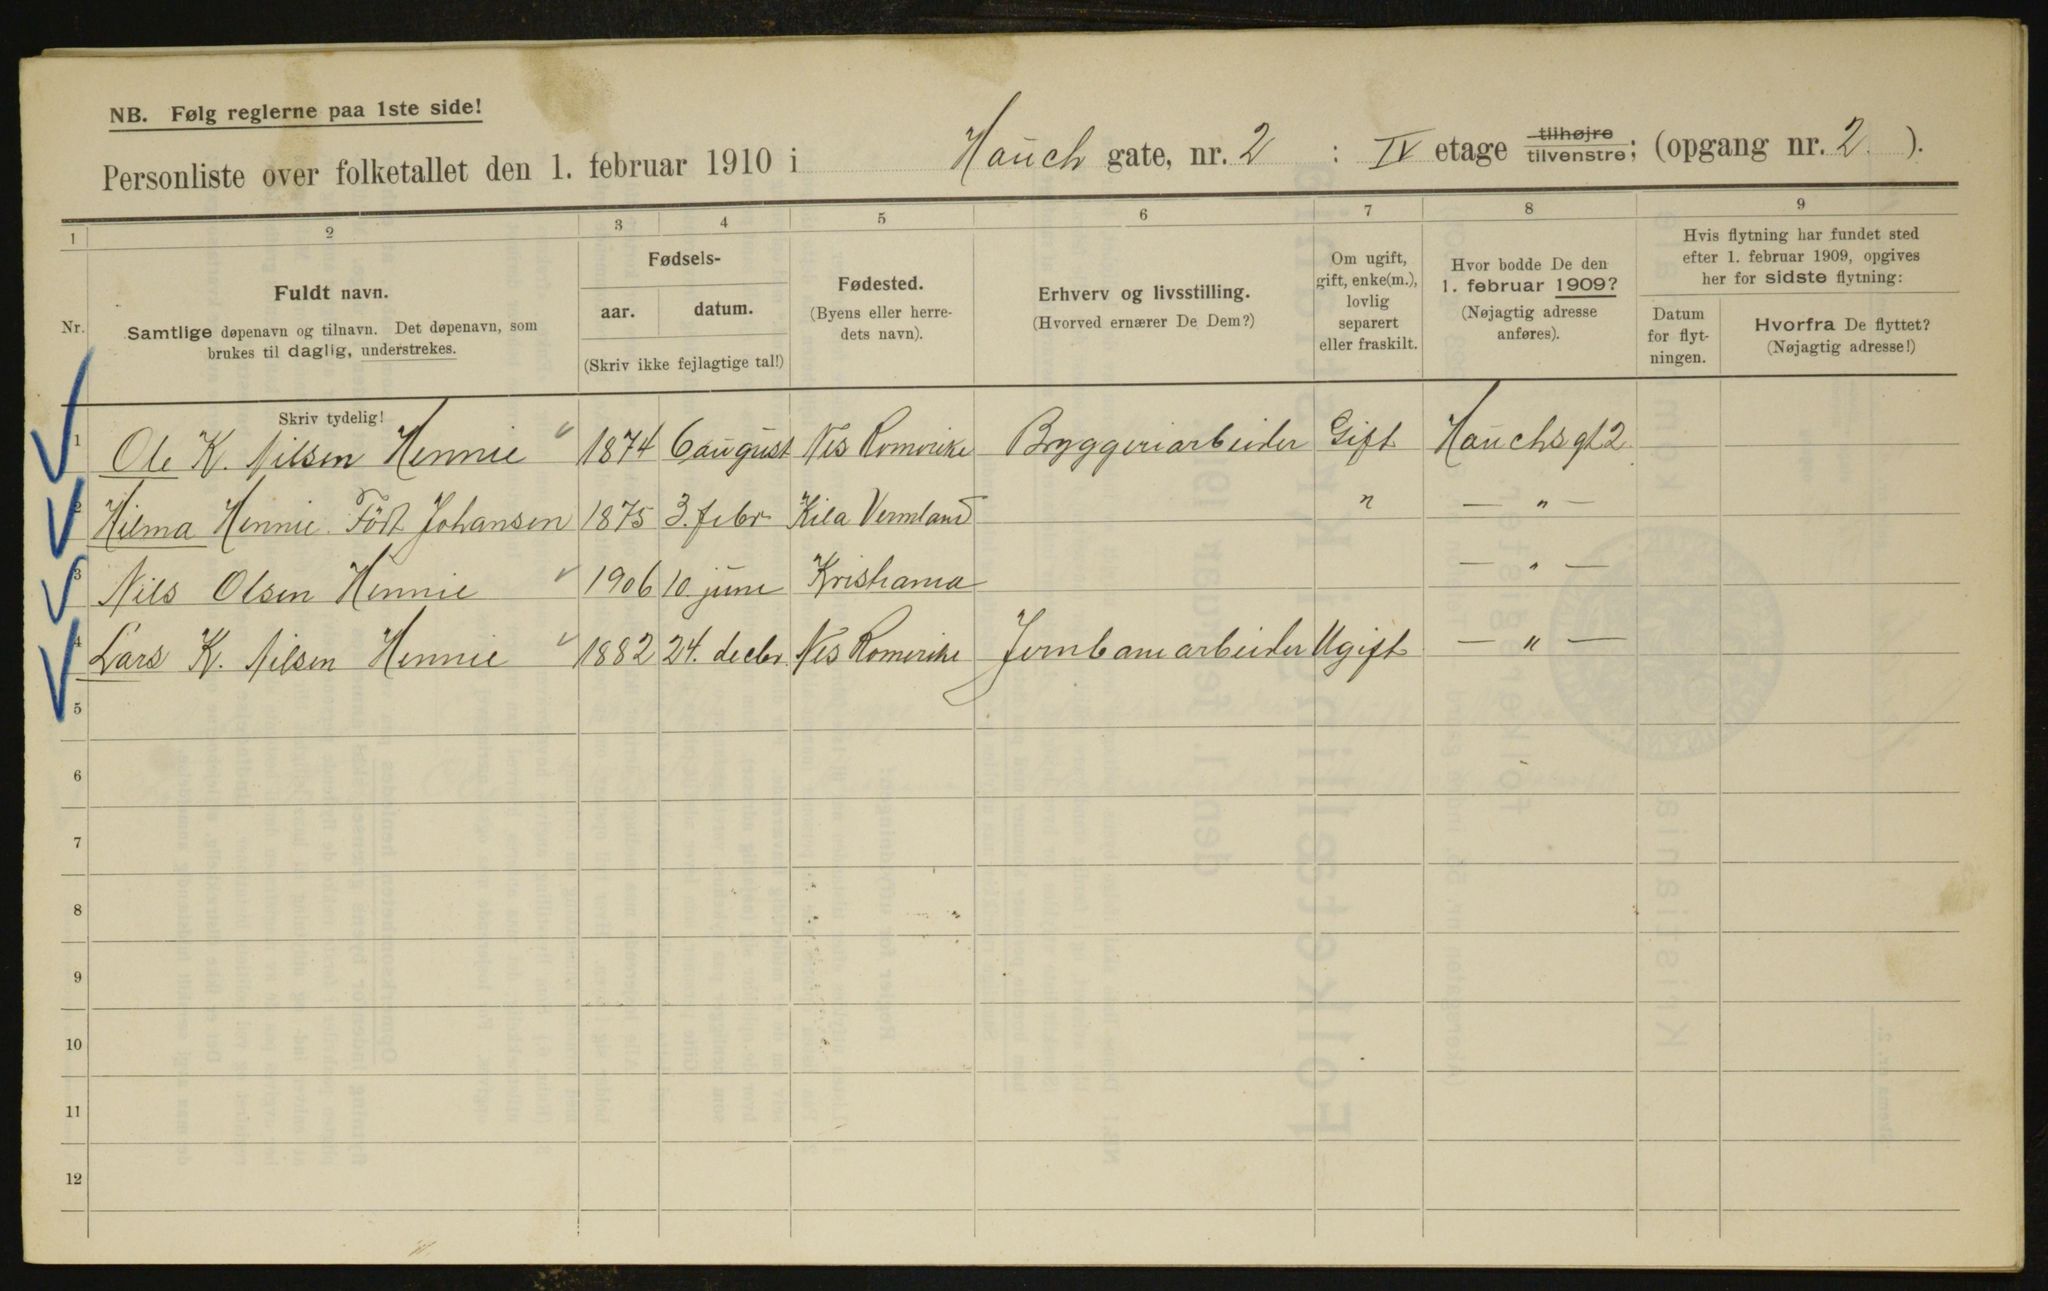 NB. Følg reglerne paa 1ste side!
Personliste over folketallet den 1. februar 1910 i Hauch gate, nr. 2 : IV etage tilhøjre tilvenstre; (opgang nr. 2. ).
1 2 3 4 5 6 7 8 9
Nr.
Fuldt navn.
Samtlige døpenavn og tilnavn. Det døpenavn, som
brukes til daglig, understrekes.
Fødsels-
aar. datum.
(Skriv ikke fejlagtige tal!)
Fødested.
(Byens eller herre-
dets navn).
Erhverv og livsstilling.
(Hvorved ernærer De Dem?)
Om ugift,
gift, enke(m.),
lovlig
separert
eller fraskilt.
Hvor bodde De den
1. februar 1909?
(Nøjagtig adresse
anføres).
Hvis flytning har fundet sted
efter 1. februar 1909, opgives
her for sidste flytning:
Datum
for flyt-
ningen.
Hvorfra De flyttet?
(Nøjagtig adresse!)
Skriv tydelig!
1 Ole K. Nilsen Hennie 1874 6 august Nes Romerike Bryggeriarbeider Gift Hauchsgt 2
2 Hilma Hennie Född Johansen 1875 3. febr Kila Vermland " — " —
3 Nils Olsen Hennie 1906 10. juni Kristiania — " —
4 Lars K. Nilsen Hennie 1882 24. decbr. Nes Romerike Jernbanearbeider Ugift — " —
5
6
7
8
9
10
11
12